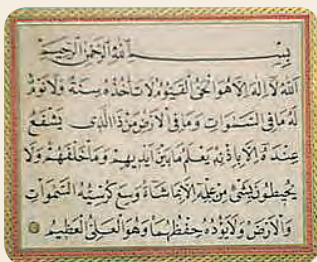 بِسْمِ اللهِ الرَّحْمٰنِ الرَّحِيْمِ
اَللهُ لَا اِلٰهَ اِلَّا هُوَ الْحَيُّ الْقَيُّوْمُ لَا تَأْخُذُهُ سِنَةٌ وَلَا نَوْمٌ
لَهُ مَا فِي السَّمٰوَاتِ وَمَا فِي الْاَرْضِ مَنْ ذَا الَّذِي يَشْفَعُ
عِنْدَهُ اِلَّا بِاِذْنِهِ يَعْلَمُ مَا بَيْنَ اَيْدِيهِمْ وَمَا خَلْفَهُمْ وَلَا
يُحِيطُونَ بِشَيْءٍ مِنْ عِلْمِهِ اِلَّا بِمَا شَاءَ وَسِعَ كُرْسِيُّهُ السَّمٰوَاتِ
وَالْاَرْضَ وَلَا يَؤُدُهُ حِفْظُهُمَا وَهُوَ الْعَلِيُّ الْعَظِيمُ